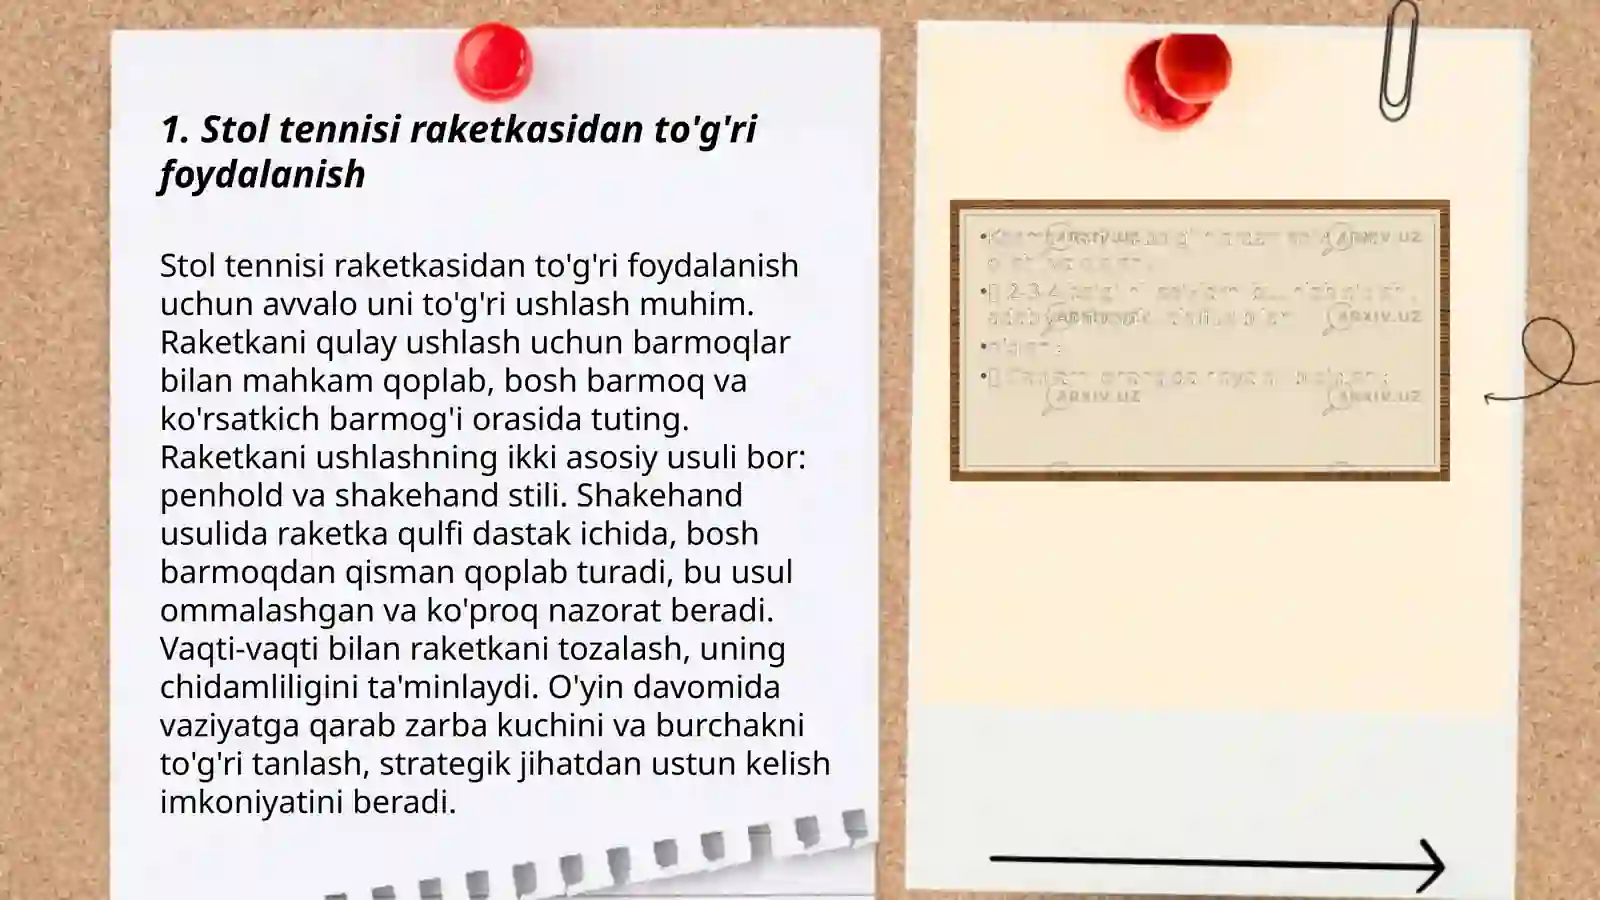 1. Stol tennisi raketkasidan to'g'ri
foydalanish
Stol tennisi raketkasidan to'g'ri foydalanish
uchun avvalo uni to'g'ri ushlash muhim.
Raketkani qulay ushlash uchun barmoqlar
bilan mahkam qoplab, bosh barmoq va
ko'rsatkich barmog'i orasida tuting.
Raketkani ushlashning ikki asosiy usuli bor:
penhold va shakehand stili. Shakehand
usulida raketka qulfi dastak ichida, bosh
barmoqdan qisman qoplab turadi, bu usul
ommalashgan va ko'proq nazorat beradi.
Vaqti-vaqti bilan raketkani tozalash, uning
chidamliligini ta'minlaydi. O'yin davomida
vaziyatga qarab zarba kuchini va burchakni
to'g'ri tanlash, strategik jihatdan ustun kelish
imkoniyatini beradi.
ARXIV.UZ
2-3-4
ARXIV.UZ
ARXIV.UZ ARXIV.UZ